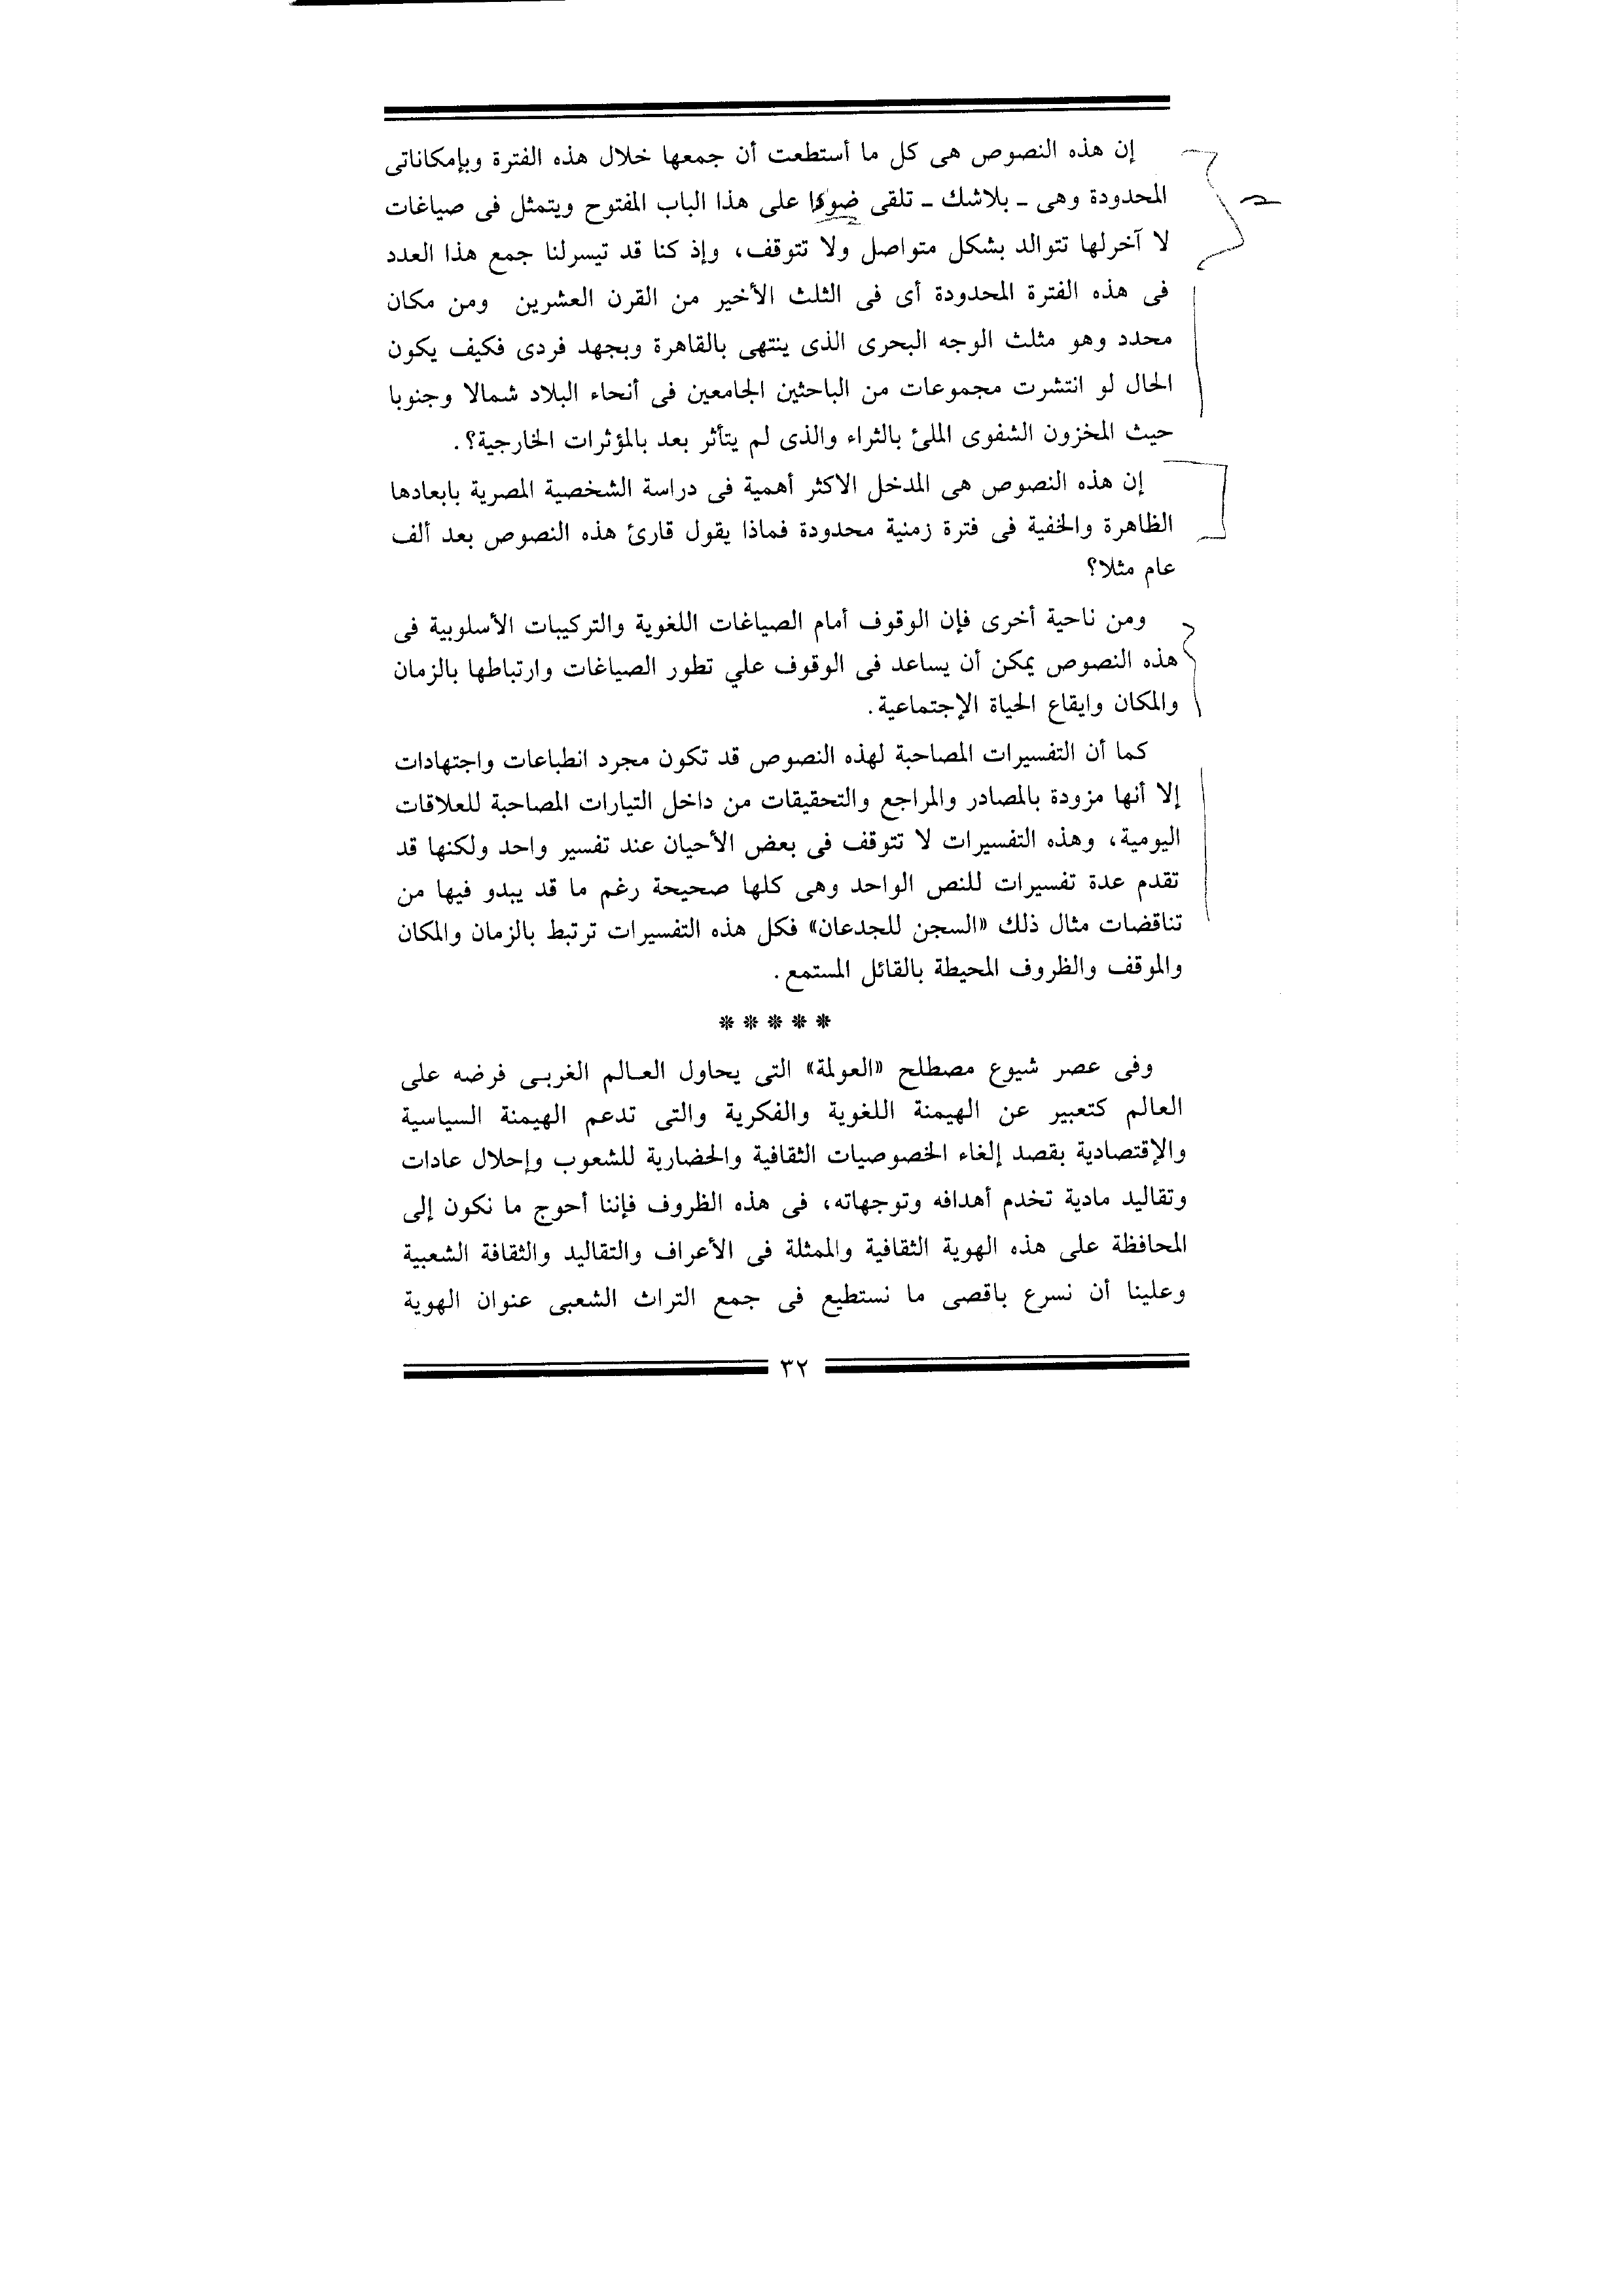 إن هذه النصوص هى كل ما أستطعت أن جمعها خلال هذه الفترة وبإمكاناتى
المحدودة وهى ـ بلاشك ـ تلقى على هذا الباب المفتوح ويتمثل فى صياغات
لا آخرلها تتوالد بشكل متواصل ولا تتوقف، وإذ كنا قد تيسرلنا جمع هذا العدد
فى هذه الفترة المحدودة أى فى الثلث الأخير من القرن العشرين ومن مكان
محدد وهو مثلث الوجه البحرى الذى ينتهى بالقاهرة وبجهد فردى فكيف يكون
الحال لو انتشرت مجموعات من الباحثين الجامعين فى أنحاء البلاد شمالا وجنوبا
حيث المخزون الشفوى الملئ بالثراء والذى لم يتأثر بعد بالمؤثرات الخارجية؟.
إن هذه النصوص هى المدخل الاكثر أهمية فى دراسة الشخصية المصرية بابعادها
الظاهرة والخفية فى فترة زمنية محدودة فماذا يقول قارئ هذه النصوص بعد ألف
عام مثلا؟
ومن ناحية أخرى فإن الوقوف أمام الصياغات اللغوية والتركيبات الأسلوبية فى
هذه النصوص يمكن أن يساعد فى الوقوف علي تطور الصياغات وارتباطها بالزمان
والمكان وايقاع الحياة الإجتماعية.
كما أن التفسيرات المصاحبة لهذه النصوص قد تكون مجرد انطباعات واجتهادات
إلا أنها مزودة بالمصادر والمراجع والتحقيقات من داخل التيارات المصاحبة للعلاقات
اليومية، وهذه التفسيرات لا تتوقف فى بعض الأحيان عند تفسير واحد ولكنها قد
تقدم عدة تفسيرات للنص الواحد وهى كلها صحيحة رغم ما قد يبدو فيها من
تناقضات مثال ذلك «السجن للجدعان» فكل هذه التفسيرات ترتبط بالزمان والمكان
والموقف والظروف المحيطة بالقائل المستمع.
* * * * *
وفى عصر شيوع مصطلح «العولمة» التى يحاول العالم الغربى فرضه على
العالم كتعبير عن الهيمنة اللغوية والفكرية والتى تدعم الهيمنة السياسية
والإقتصادية بقصد إلغاء الخصوصيات الثقافية والحضارية للشعوب وإحلال عادات
وتقاليد مادية تخدم أهدافه وتوجهاته، فى هذه الظروف فإننا أحوج ما نكون إلى
المحافظة على هذه الهوية الثقافية والممثلة فى الأعراف والتقاليد والثقافة الشعبية
وعلينا أن نسرع باقصى ما نستطيع فى جمع التراث الشعبى عنوان الهوية
٣٢